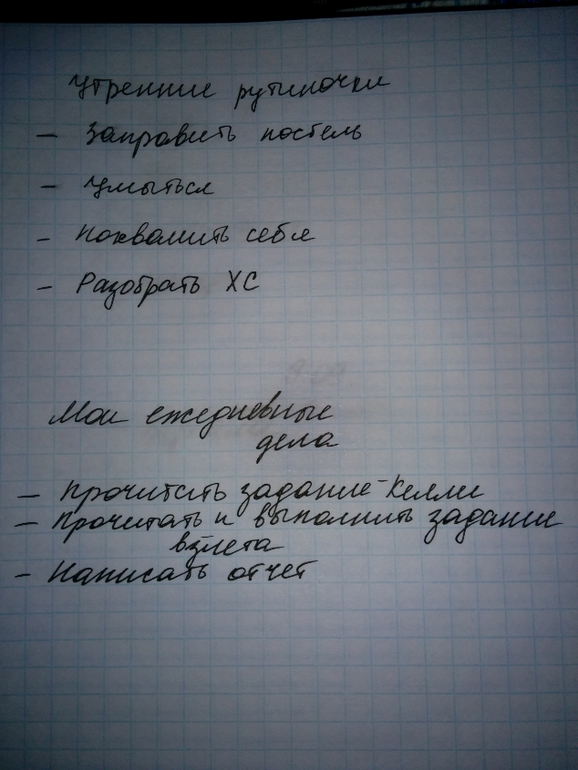 Утренние рутиночки
- Заправить постель
- Умыться
- Похвалить себя
- Разобрать ХС
Мои ежедневные
дела
- Прочитать задание-Келли
- Прочитать и выполнить задание
взлета
- Написать отчет